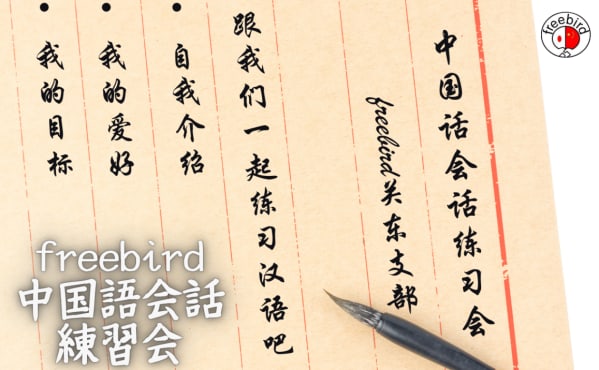 中国话会话练习会
freebird关东支部
跟我们一起练习汉语吧
• 自我介绍
• 我的爱好
• 我的目标
freebird
中国語会話
練習会
freebird